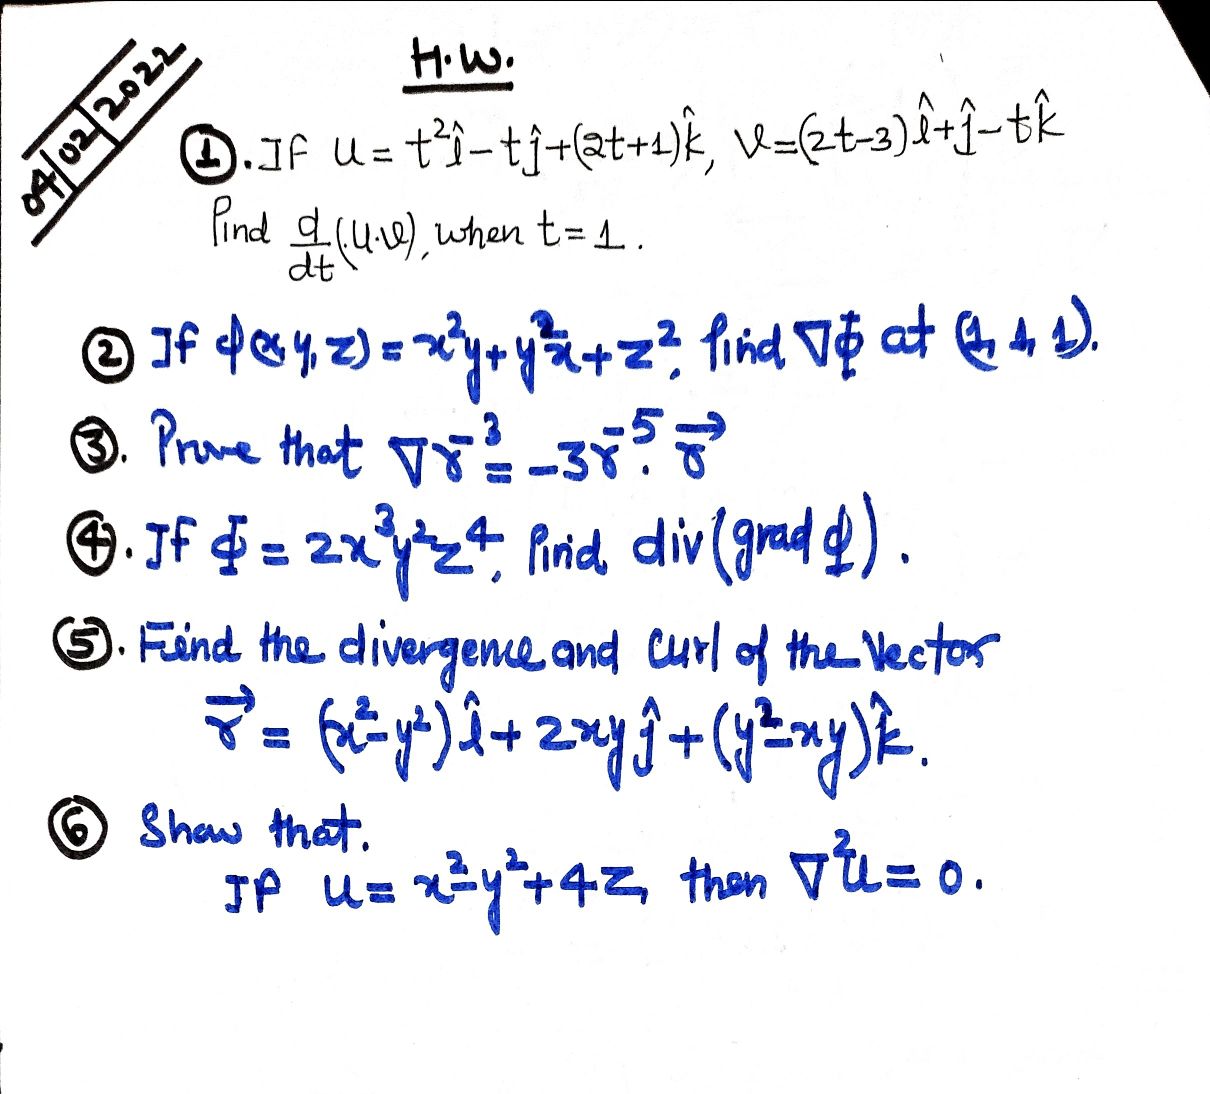 04/02/2022
H.W.
①. If u = t²î - tĵ + (2t+1)k̂, v = (2t-3)î + ĵ - tk̂
Find d/dt (u.v), when t = 1.
② If ϕ(x, y, z) = x²y + y²x + z², find ∇Φ at (1, 1, 1).
③. Prove that ∇r⁻³ = -3r⁻⁵. r⃗
④. If Φ = 2x³y²z⁴, find div (grad ϕ).
⑤. Find the divergence and curl of the Vector
r⃗ = (x²-y²)î + 2xyĵ + (y²-xy)k̂.
⑥ Show that.
If u = x²-y²+4z, then ∇²u = 0.